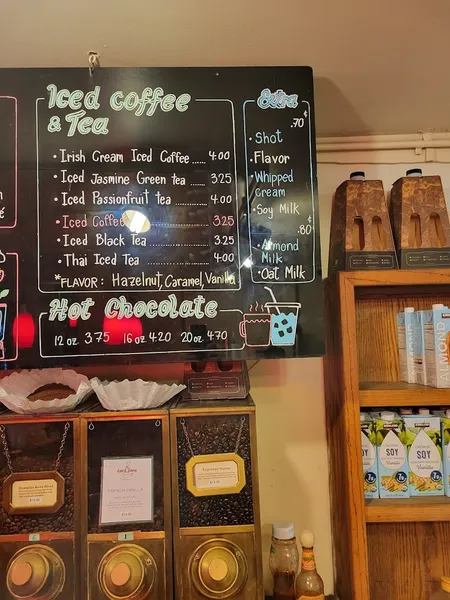 Iced coffee
& Tea
• Irish Cream Iced Coffee ...... 4.00
• Iced Jasmine Green tea ..... 3.25
• Iced Passionfruit tea ........ 4.00
• Iced Coffee 3.25
• Iced Black Tea ............... 3.25
• Thai Iced Tea ................ 4.00
*FLAVOR: Hazelnut, Caramel, Vanilla
Hot Chocolate
12 oz 3.75 16 oz 4.20 20 oz 4.70
Extra
.70¢
• Shot
• Flavor
• Whipped
Cream
• Soy Milk
.80¢
• Almond
Milk
• Oat Milk
ALMOND
SOY
Vanilla
SOY
Vanilla